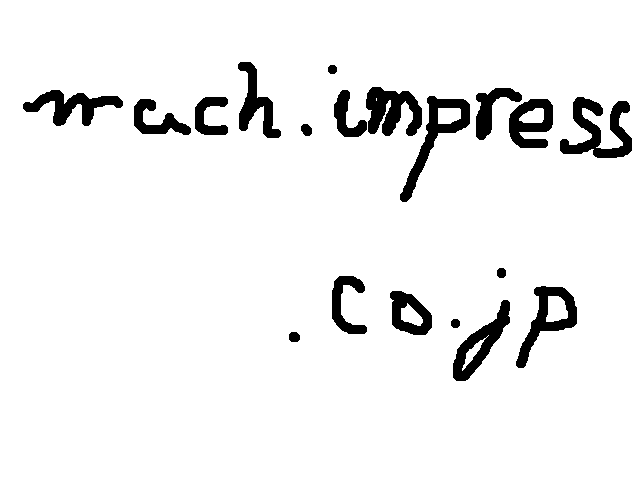 mach.impress
.co.jp